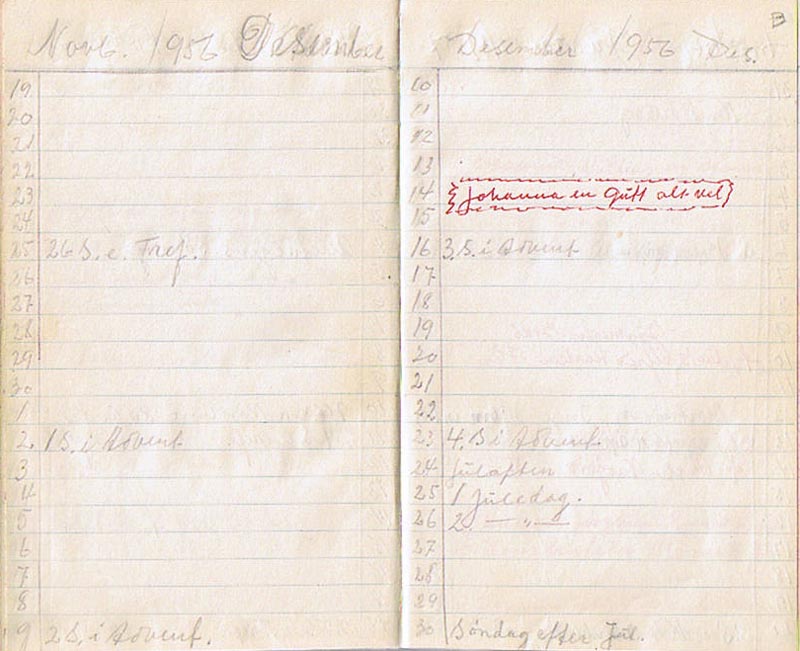 Novb. 1956 Desember
19
20
21
22
23
24
25 26 S. e. Tref.
26
27
28
29
30
1
2 1 S. i Advent
3
4
5
6
7
8
9 2 S. i Advent.
Desember 1956 Des.
10
11
12
13
14 {Johanna en Gutt alt vel}
15
16 3. S. i Advent
17
18
19
20
21
22
23 4. S i Advent.
24 Julaften
25 1 Juledag.
26 2. — „ —
27
28
29
30 Søndag efter Jul.